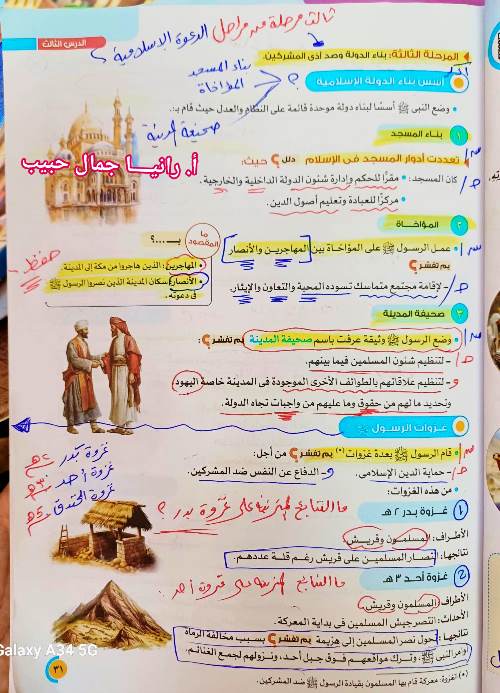 ثالث مرحلة من مراحل الدعوة الإسلامية؟
الدرس الثالث
المرحلة الثالثة: بناء الدولة وصد أذى المشركين.
أسس بناء الدولة الإسلامية
؟
بناء المسجد
المؤاخاة
صحيفة المدينة
وضع النبي ﷺ أسسًا لبناء دولة موحدة قائمة على النظام والعدل حيث قام بـ:
١ بناء مسجد
تعددت أدوار المسجد فى الإسلام دلل؟ حيث:
كان المسجد: • مقرًّا للحكم وإدارة شئون الدولة الداخلية والخارجية.
• مركزًا للعبادة وتعليم أصول الدين.
أ. رانيا جمال حبيب
٢ المؤاخاة
عمل الرسول ﷺ على المؤاخاة بين المهاجرين والأنصار
بم تفسر؟
- لإقامة مجتمع متماسك تسوده المحبة والتعاون والإيثار.
ما المقصود بـ....؟
حفظ
• المهاجرين: الذين هاجروا من مكة إلى المدينة
• الأنصار: سكان المدينة الذين نصروا الرسول ﷺ
فى دعوته.
٣ صحيفة المدينة
وضع الرسول ﷺ وثيقة عرفت باسم صحيفة المدينة بم تفسر؟:
- لتنظيم شئون المسلمين فيما بينهم.
- لتنظيم علاقاتهم بالطوائف الأخرى الموجودة فى المدينة خاصة اليهود
وتحديد ما لهم من حقوق وما عليهم من واجبات تجاه الدولة.
غزوات الرسول ﷺ
قام الرسول ﷺ بعدة غزوات (*) بم تفسر؟ من أجل:
- حماية الدين الإسلامى. - الدفاع عن النفس ضد المشركين.
• من هذه الغزوات:
غزوة بدر ٢هـ
غزوة أحد ٣هـ
غزوة الخندق ٥هـ
ما النتائج المترتبة على غزوة بدر؟
١ غزوة بدر ٢ هـ
الأطراف: المسلمون وقريش.
نتائجها: انتصار المسلمين على قريش رغم قلة عددهم.
ما النتائج المترتبة على غزوة أحد؟
٢ غزوة أحد ٣ هـ
الأطراف: المسلمون وقريش.
الأحداث: انتصر جيش المسلمين فى بداية المعركة.
نتائجها: تحول نصر المسلمين إلى هزيمة بم تفسر؟ بسبب مخالفة الرماة
أوامر النبى ﷺ، وترك مواقعهم فوق جبل أحد، ونزولهم لجمع الغنائم.
(*) الغزوة: معركة قام بها المسلمون بقيادة الرسول ﷺ ضد المشركين.
٣١
Galaxy A34 5G